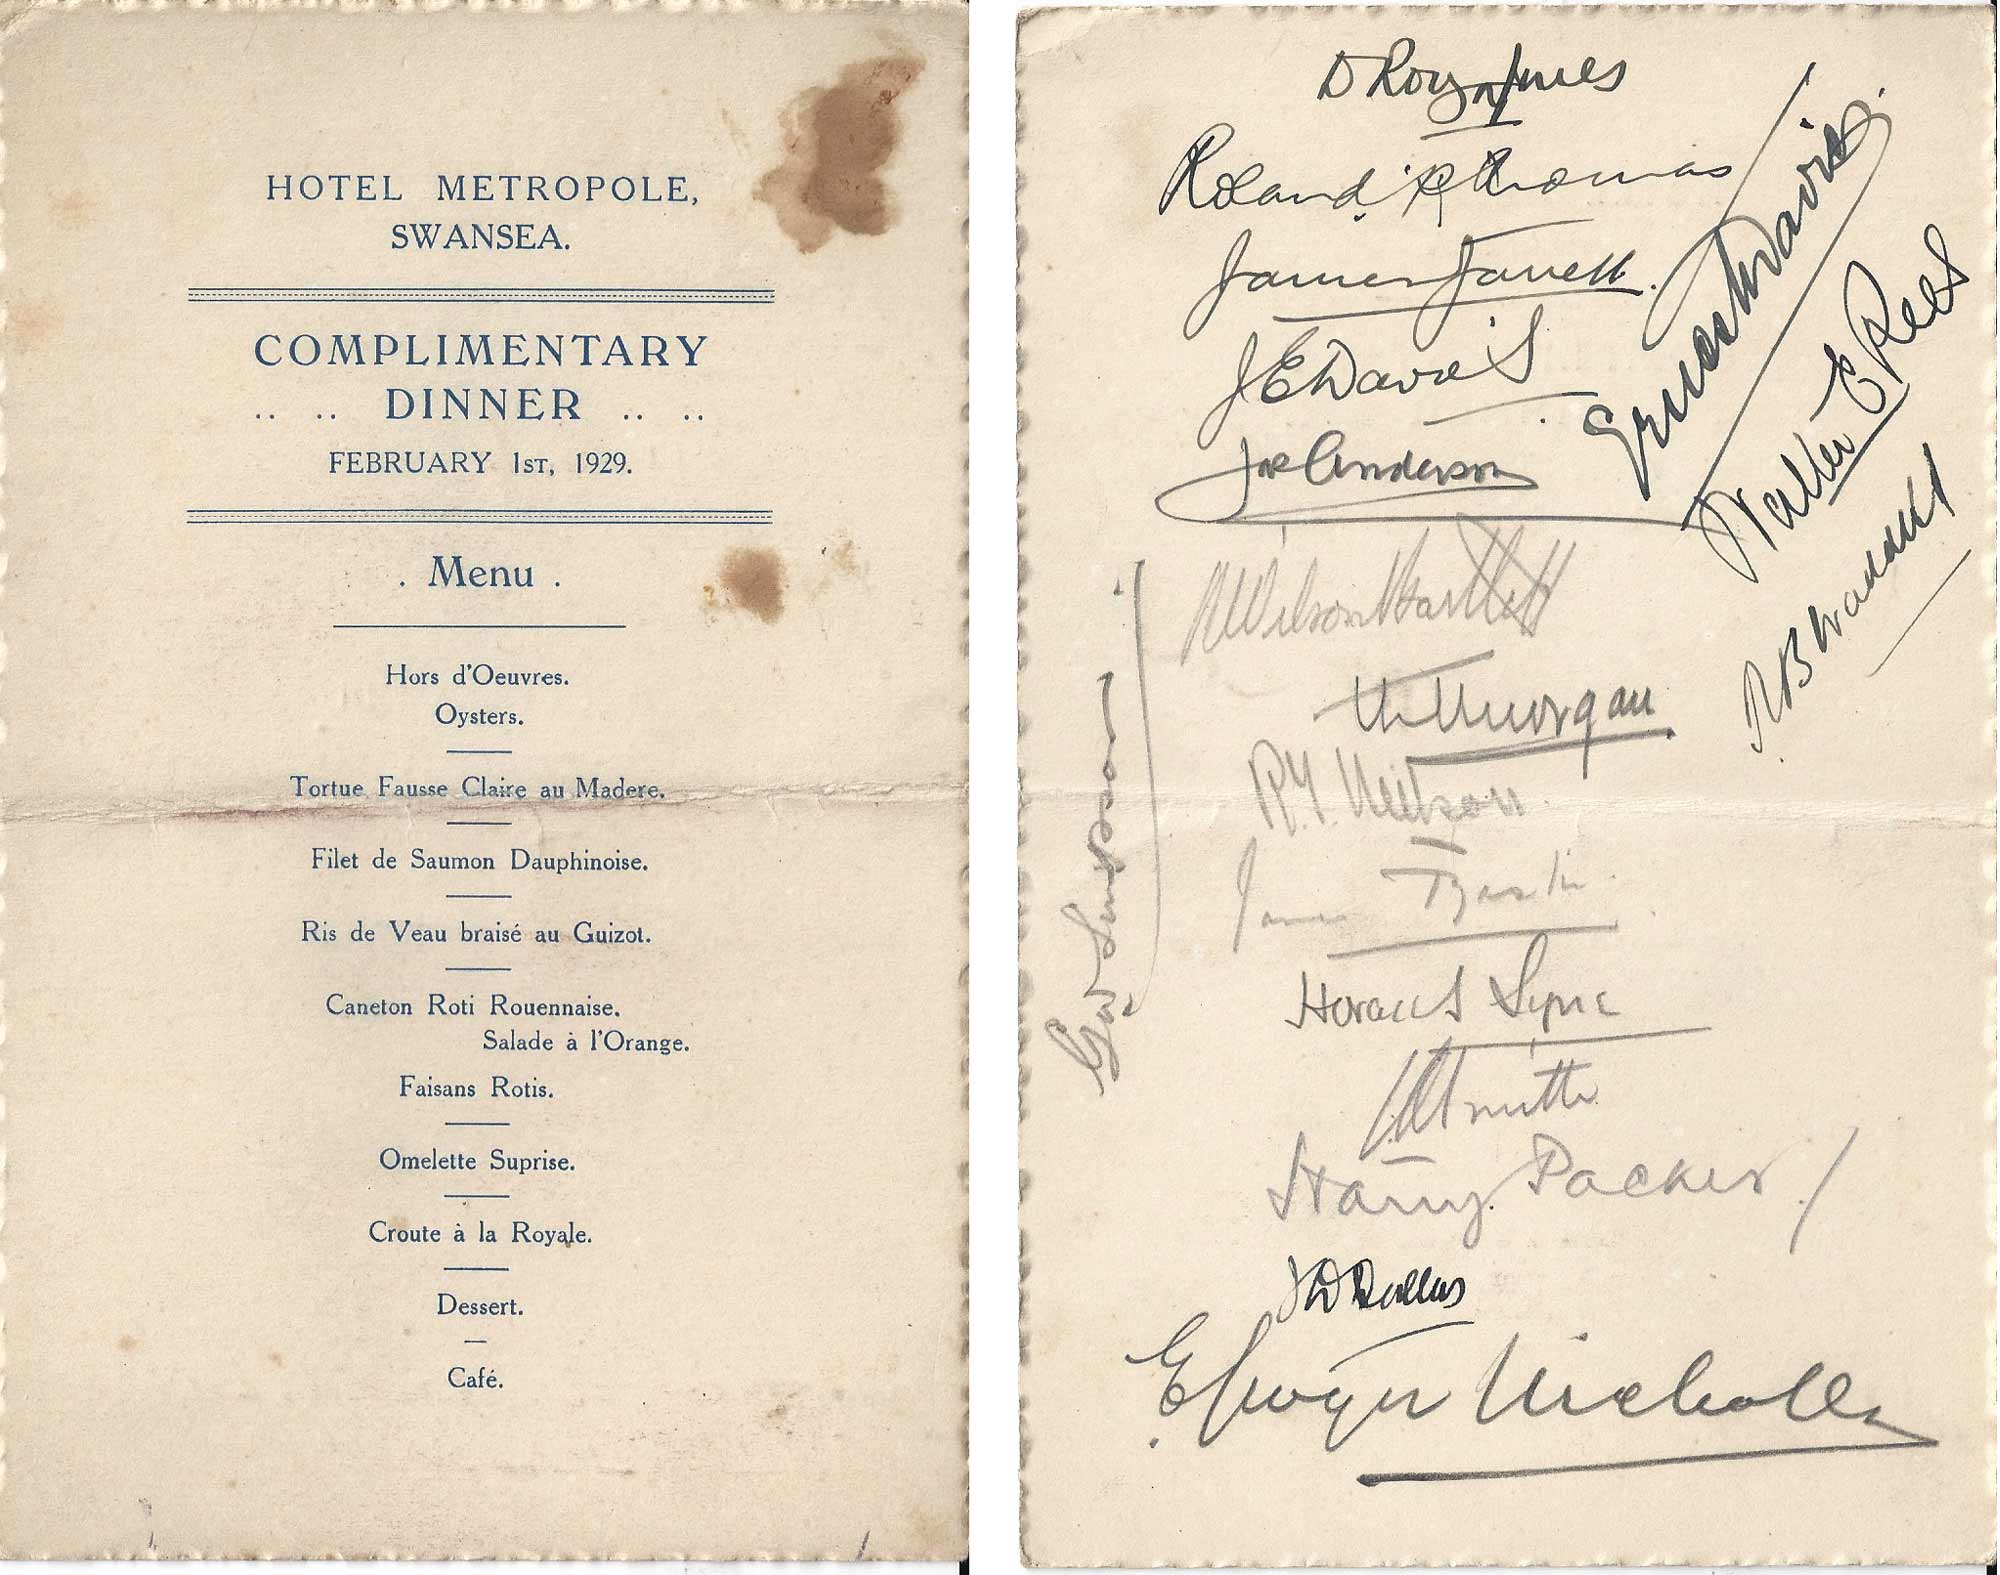 HOTEL METROPOLE,
SWANSEA.
COMPLIMENTARY
.. .. DINNER .. ..
FEBRUARY 1ST, 1929.
. Menu .
Hors d'Oeuvres.
Oysters.
Tortue Fausse Claire au Madere.
Filet de Saumon Dauphinoise.
Ris de Veau braisé au Guizot.
Caneton Roti Rouennaise.
Salade à l'Orange.
Faisans Rotis.
Omelette Suprise.
Croute à la Royale.
Dessert.
Café.
D Roy Jones
Roland Thomas
James Jarrett.
J E Davies
Joe Anderson
Ernest Davies
Walter E Rees
Wilson Bartlett
Morgan
Simpson
Horace S Lyne
Smith
Harry Packer
J D Dallas
Elwyn Nicholls